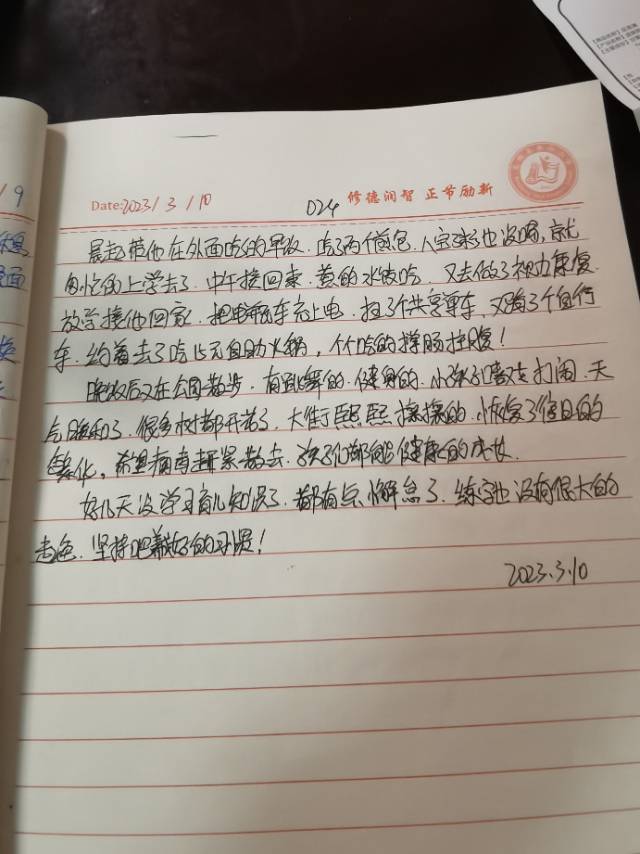 Date: 2023/3/10 024 修德润智 正节励新
晨起带他在外面吃的早饭.吃了两个煎包.八宝粥也没喝,就
匆忙的上学去了.中午接回来.煮的水饺吃.又去做了视力康复.
放学接他回家.把电瓶车充上电.扫了个共享单车.又骑了个自行
车.约着去了吃15元自助火锅,个个吃的撑肠拄腹!
晚饭后又在公园散步.有跳舞的.健身的.小孩子嘻戏打闹.天
气暖和了.很多树都开花了.大街熙熙攘攘的.恢复了往日的
繁华,希望病毒赶紧散去.孩子们都能健康的成长.
好几天没学习育儿知识了.都有点懈怠了.练字也没有很大的
起色.坚持吧养成好的习惯!
2023.3.10
9